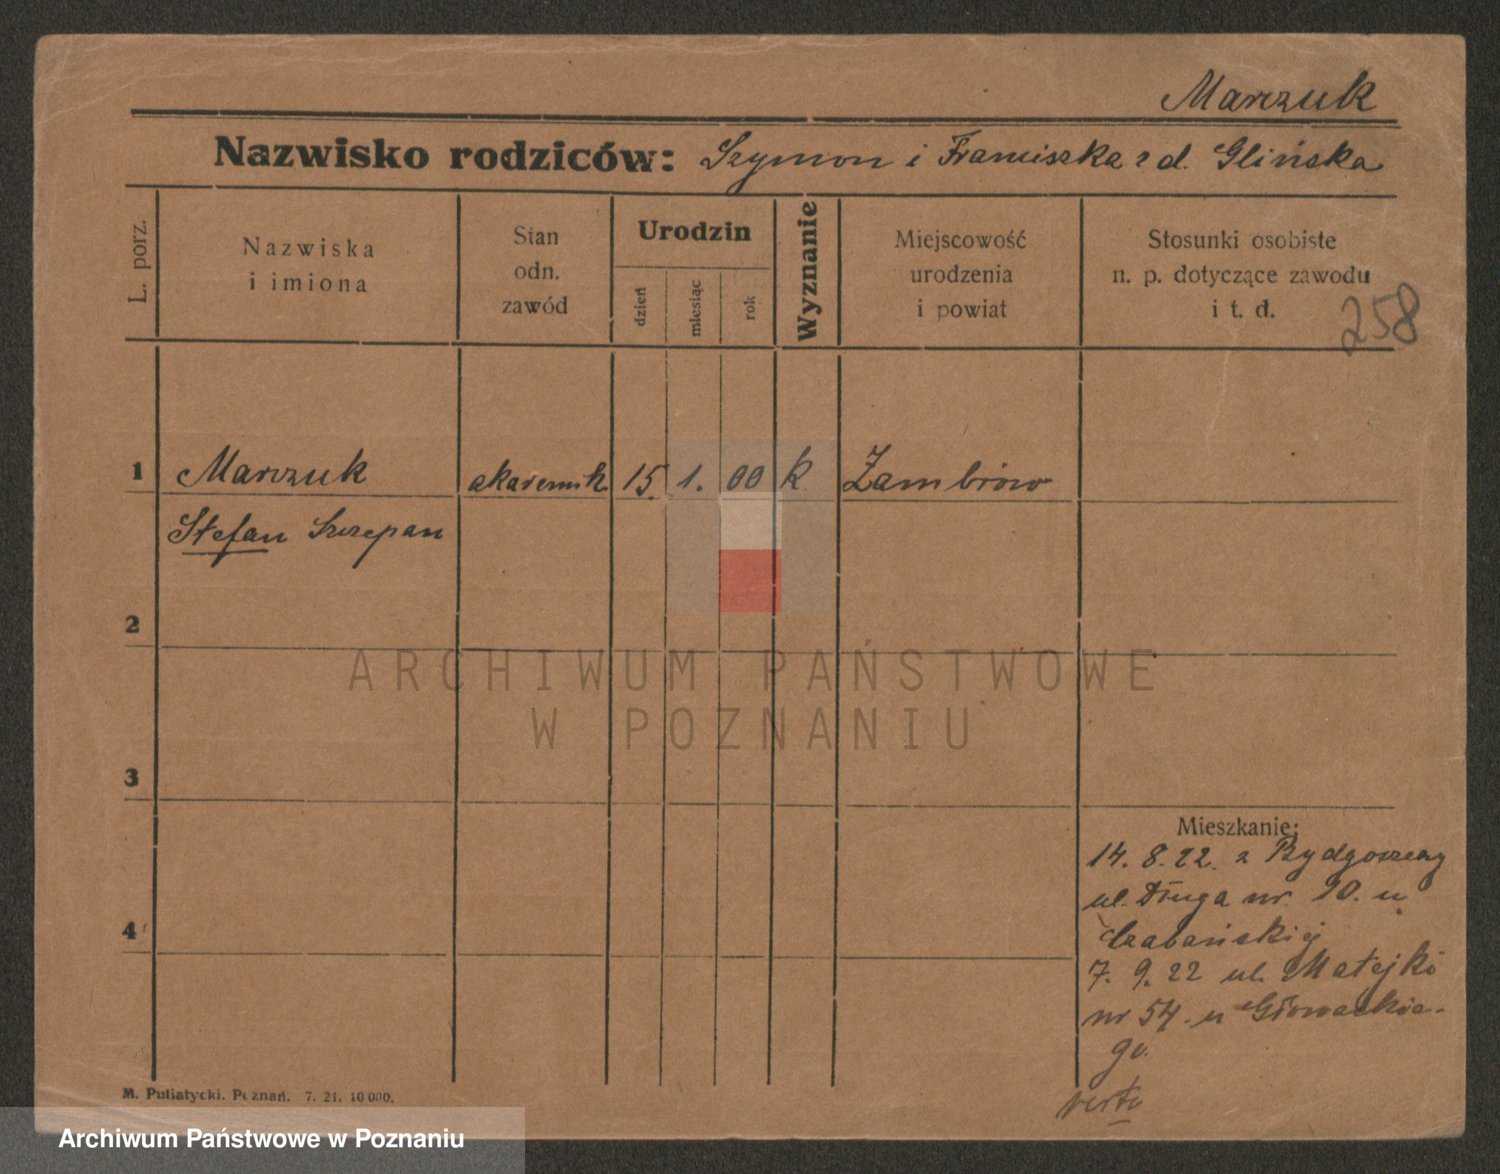 Marczuk
Nazwisko rodziców: Szymon i Franciszka z d. Glińska
L. porz.
Nazwiska
i imiona
Stan
odn.
zawód
Urodzin
dzień
miesiąc
rok
Wyznanie
Miejscowość
urodzenia
i powiat
Stosunki osobiste
n. p. dotyczące zawodu
i t. d.
258
1 Marczuk akademik 15. 1. 00 k Zambrów
Stefan Szczepan
2
3
4
ARCHIWUM PAŃSTWOWE
W POZNANIU
Mieszkanie:
14. 8. 22. z Bydgoszczy
ul. Długa nr. 10. u
7. 9. 22 ul. Matejki
nr 54. u Głowackie-
go.
verte
M. Putiatycki, Poznań. 7. 21. 10 000.
Archiwum Państwowe w Poznaniu